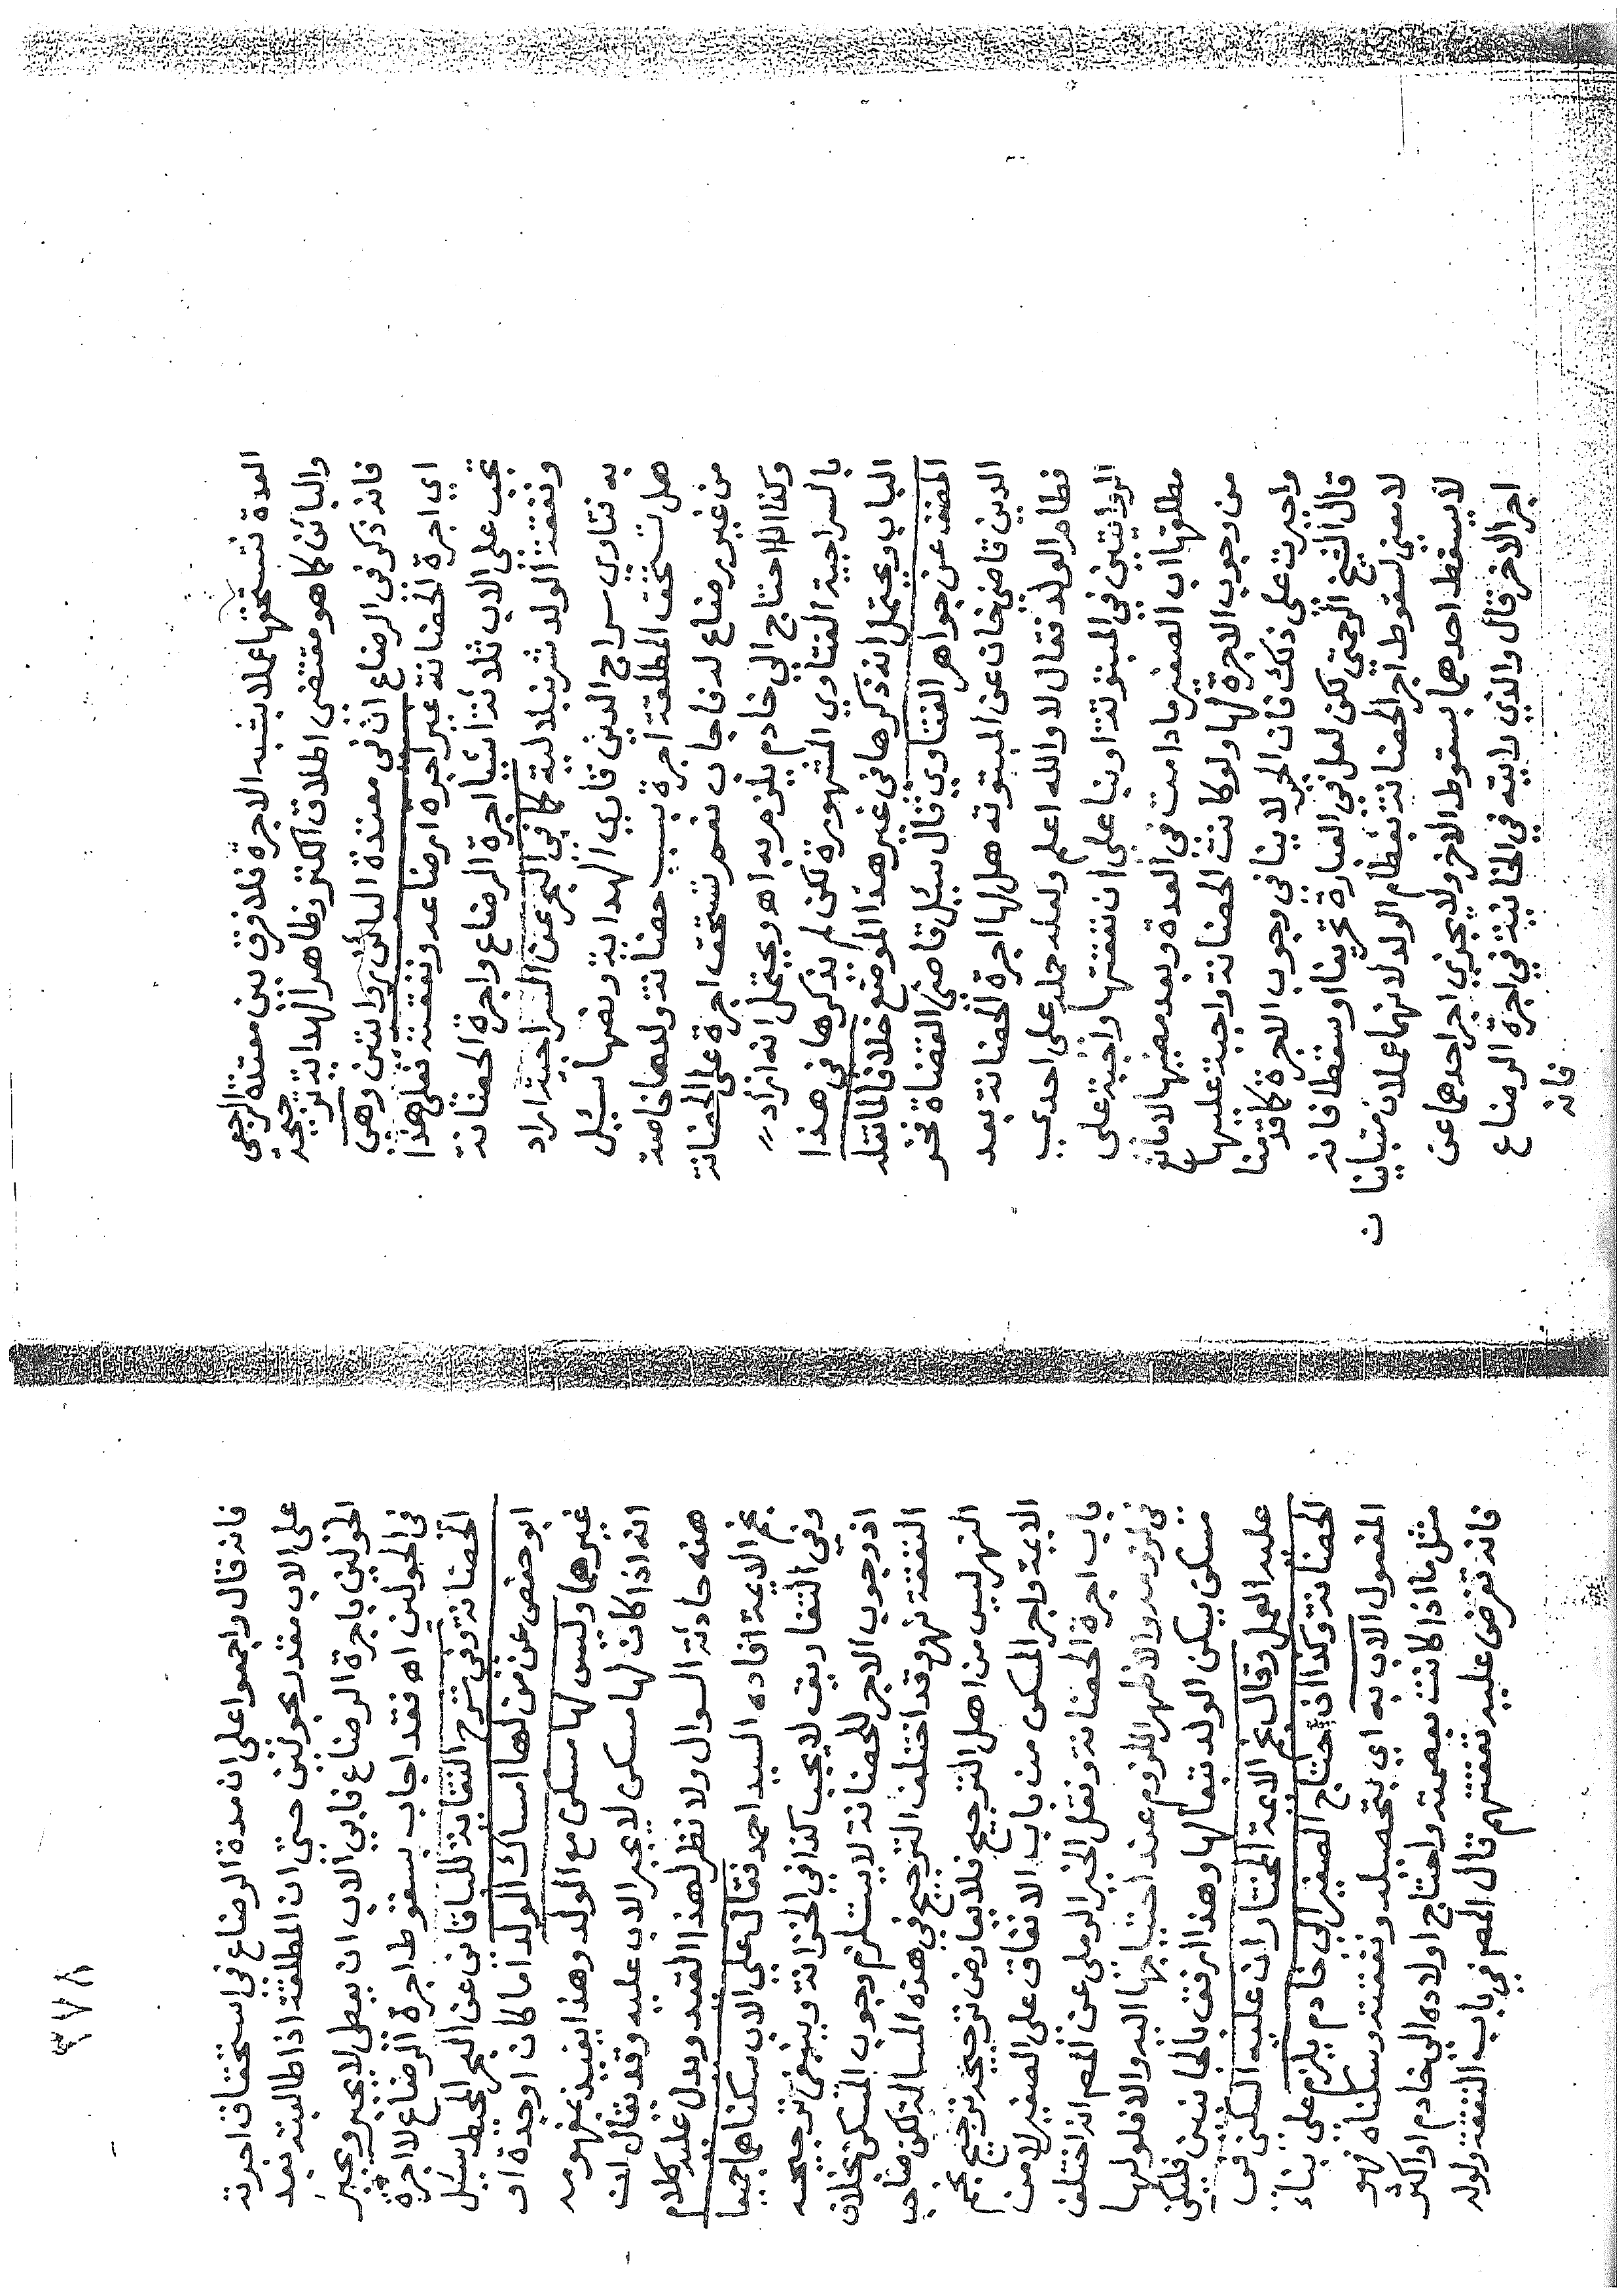 العدة تستحقها عملا بشبه الاجرة فلا فرق بين معتدة الرجعى
والبائن كما هو مقتضى اطلاق الكنز وظاهر الهداية ترجيحه
فانه ذكر فى الرضاع ان فى معتدة البائن روايتين وهى
اى اجرة الحضانة غير اجرة ارضاعه ونفقته فعلى هذا
تجب على الاب ثلاثة اشيا اجرة الرضاع واجرة الحضانة
ونفقة الولد شرنبلالية كما فى البحر عن السراجية اراد
به فتاوي سراج الدين قاري الهداية ونصها سئل
هل تستحق المطلقة اجرة بسبب حضانة ولدها خاصة
من غير رضاع له فاجاب نعم تستحق اجرة على الحضانة
وكذا اذا احتاج الي خادم يلزم به اه ويحتمل انه اراد
بالسراجية الفتاوي المشهورة لكن لم يذكرها فى هذا
الباب ويحتمل انه ذكرها فى غير هذا الموضع خلافا لما نقله
المصنف عن جواهر الفتاوي قال سئل قاضى القضاة فخر
الدين قاضى خان عن المبتوتة هل لها اجرة الحضانة بعد
فطام الولد فقال لا والله اعلم ولعله حمله على احدى
الروايتين فى المبتوتة او بنا على ان نفقتها واجبة على
مطلقها اب الصغير مادامت فى العدة وبعد مضيها لا مانع
من وجوب الاجرة لها ولو كانت الحضانة واجبة عليها
واجبرت على ذلك فان الجبر لا ينافى وجوب الاجرة كما قدمنا
قال الشيخ الرحمتي لكن لعل فى العبارة تحريفا وسقطا فانه
لا معنى لسقوط اجر الحضانة بفطام الولد لانهما عملان متباينان
لا يسقط احدهما بسقوط الاخر ولا يجزي اجر احدهما عن
اجر الاخر قال والذي رايته في الخانية في اجرة الرضاع
فانه
٣٧٨
فانه قال واجمعوا على ان مدة الرضاع في استحقاق اجرته
على الاب مقدر بحولين حتى ان المطلقة اذا طالبته بعد
الحولين باجرة الرضاع فابى الاب ان يعطى لا يجبر ويجبر
فى الحولين اه فقد اجاب بسقوط اجرة الرضاع لا اجرة
الحضانة وفى شرح النقاية للباقانى عن البحر المحيط سئل
ابو حفص عن من لها امساك الولد اما كان او جدة او
غيرهما وليس لها مسكن مع الولد وهذا يفيد بمفهومه
انه اذا كان لها مسكن لا يجبر الاب عليه وقد يقال ان
هذه حادثة السوال ولا نظر لهذا القيد ويدل عليه كلام
نجم الايمة افاده السيد احمد فقال على الاب سكناهما جميعا
وفي التفاريق لا يجب كذا في الخزانة وينبغى ترجيحه
اذ وجوب الاجر للحضانة لا يستلزم وجوب المسكن بخلاف
النفقة نهر وقد اختلف الترجيح في هذه المسالة لكن صاحب
النهر ليس من اهل الترجيح فلا يعارض ترجيحه ترجيح نجم
الايمة واجر المسكن من باب الانفاق على الصغير لا من
باب اجرة الحضانة ونقل الخير الرملى عن المص انه اختلف
فى لزومه والاظهر اللزوم عند احتياجها اليه والا فلو لها
مسكن يسكن الولد تبعا لها وهذا ارفق بالجانبين فليكن
عليه العمل وقال نجم الايمة المختار ان عليه السكنى فى
الحضانة وكذا ان احتاج الصغير الى خادم يلزم على بناء
المفعول الاب به اي بتحصيله ونفقته وسكناه فهو
مثل ما اذا كانت بعصمته واحتاج اولاده الى خادم او اكثر
فانه تفرض عليه نفقتهم قال المص في باب النفقة ولو له